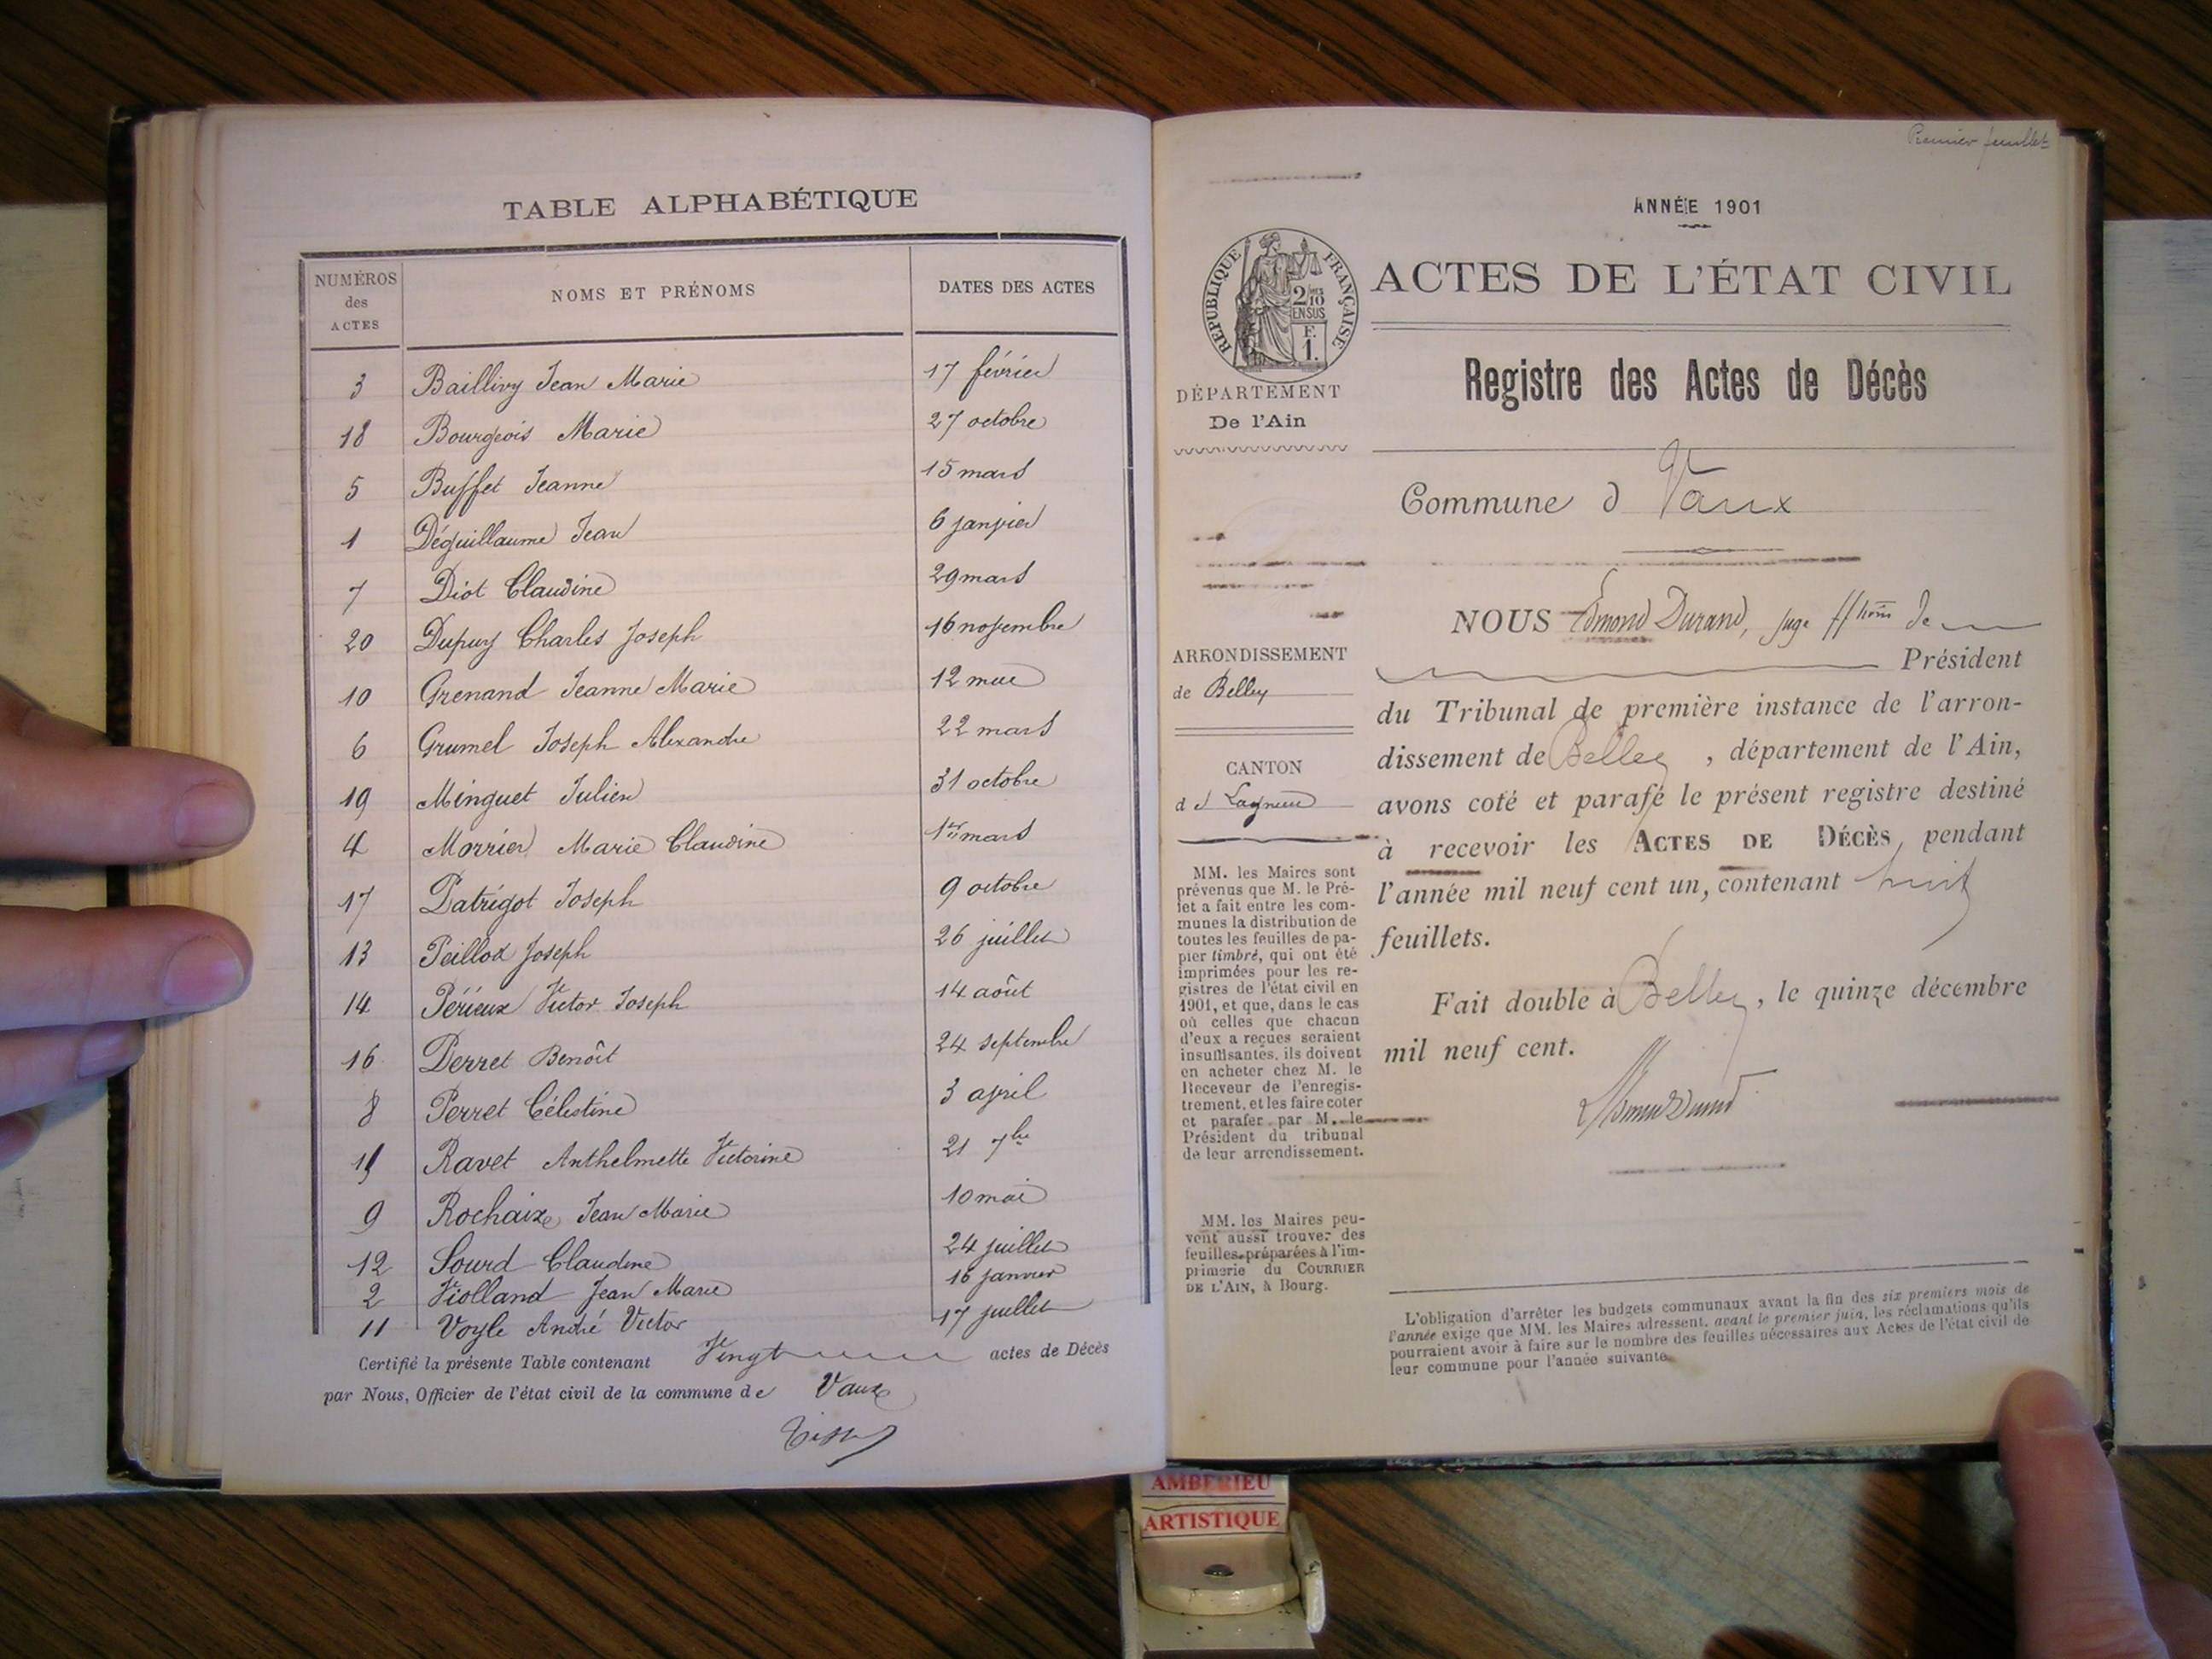 TABLE ALPHABÉTIQUE
NUMÉROS des ACTES NOMS ET PRÉNOMS DATES DES ACTES
3 Baillivy Jean Marie 17 février
18 Bourgeois Marie 27 octobre
5 Buffet Jeanne 15 mars
1 Déguillaume Jean 6 janvier
7 Diot Claudine 29 mars
20 Dupuy Charles Joseph 16 novembre
10 Grenand Jeanne Marie 12 mai
6 Grumel Joseph Alexandre 22 mars
19 Minguet Julien 31 octobre
4 Morrier Marie Claudine 1er mars
17 Patrigot Joseph 9 octobre
13 Peillod Joseph 26 juillet
14 Périeux Victor Joseph 14 août
16 Perret Benoît 24 septembre
8 Perret Célestine 3 avril
15 Ravet Anthelmette Victorine 21 7bre
9 Rochaix Jean Marie 10 mai
12 Sourd Claudine 24 juillet
2 Violland Jean Marie 16 janvier
11 Voyle André Victor 17 juillet
Certifié la présente Table contenant Vingt actes de Décès
par Nous, Officier de l'état civil de la commune de Vaux
Premier feuillet
ANNÉE 1901
RÉPUBLIQUE FRANÇAISE
2/10 EN SUS
F. 1.
ACTES DE L'ÉTAT CIVIL
DÉPARTEMENT
De l'Ain
Registre des Actes de Décès
Commune d Vaux
ARRONDISSEMENT
de Belley
CANTON
de Lagnieu
MM. les Maires sont
prévenus que M. le Pré-
fet a fait entre les com-
munes la distribution de
toutes les feuilles de pa-
pier timbré, qui ont été
imprimées pour les re-
gistres de l'état civil en
1901, et que, dans le cas
où celles que chacun
d'eux a reçues seraient
insuffisantes, ils doivent
en acheter chez M. le
Receveur de l'enregis-
trement, et les faire coter
et parafer par M. le
Président du tribunal
de leur arrondissement.
MM. les Maires peu-
vent aussi trouver des
feuilles préparées à l'im-
primerie du COURRIER
DE L'AIN, à Bourg.
NOUS Edmond Durand, juge ffons de
Président
du Tribunal de première instance de l'arron-
dissement de Belley, département de l'Ain,
avons coté et parafé le présent registre destiné
à recevoir les ACTES DE DÉCÈS, pendant
l'année mil neuf cent un, contenant huit
feuillets.
Fait double à Belley, le quinze décembre
mil neuf cent.
L'obligation d'arrêter les budgets communaux avant la fin des six premiers mois de
l'année exige que MM. les Maires adressent, avant le premier juin, les réclamations qu'ils
pourraient avoir à faire sur le nombre des feuilles nécessaires aux Actes de l'état civil de
leur commune pour l'année suivante.
AMBERIEU
ARTISTIQUE